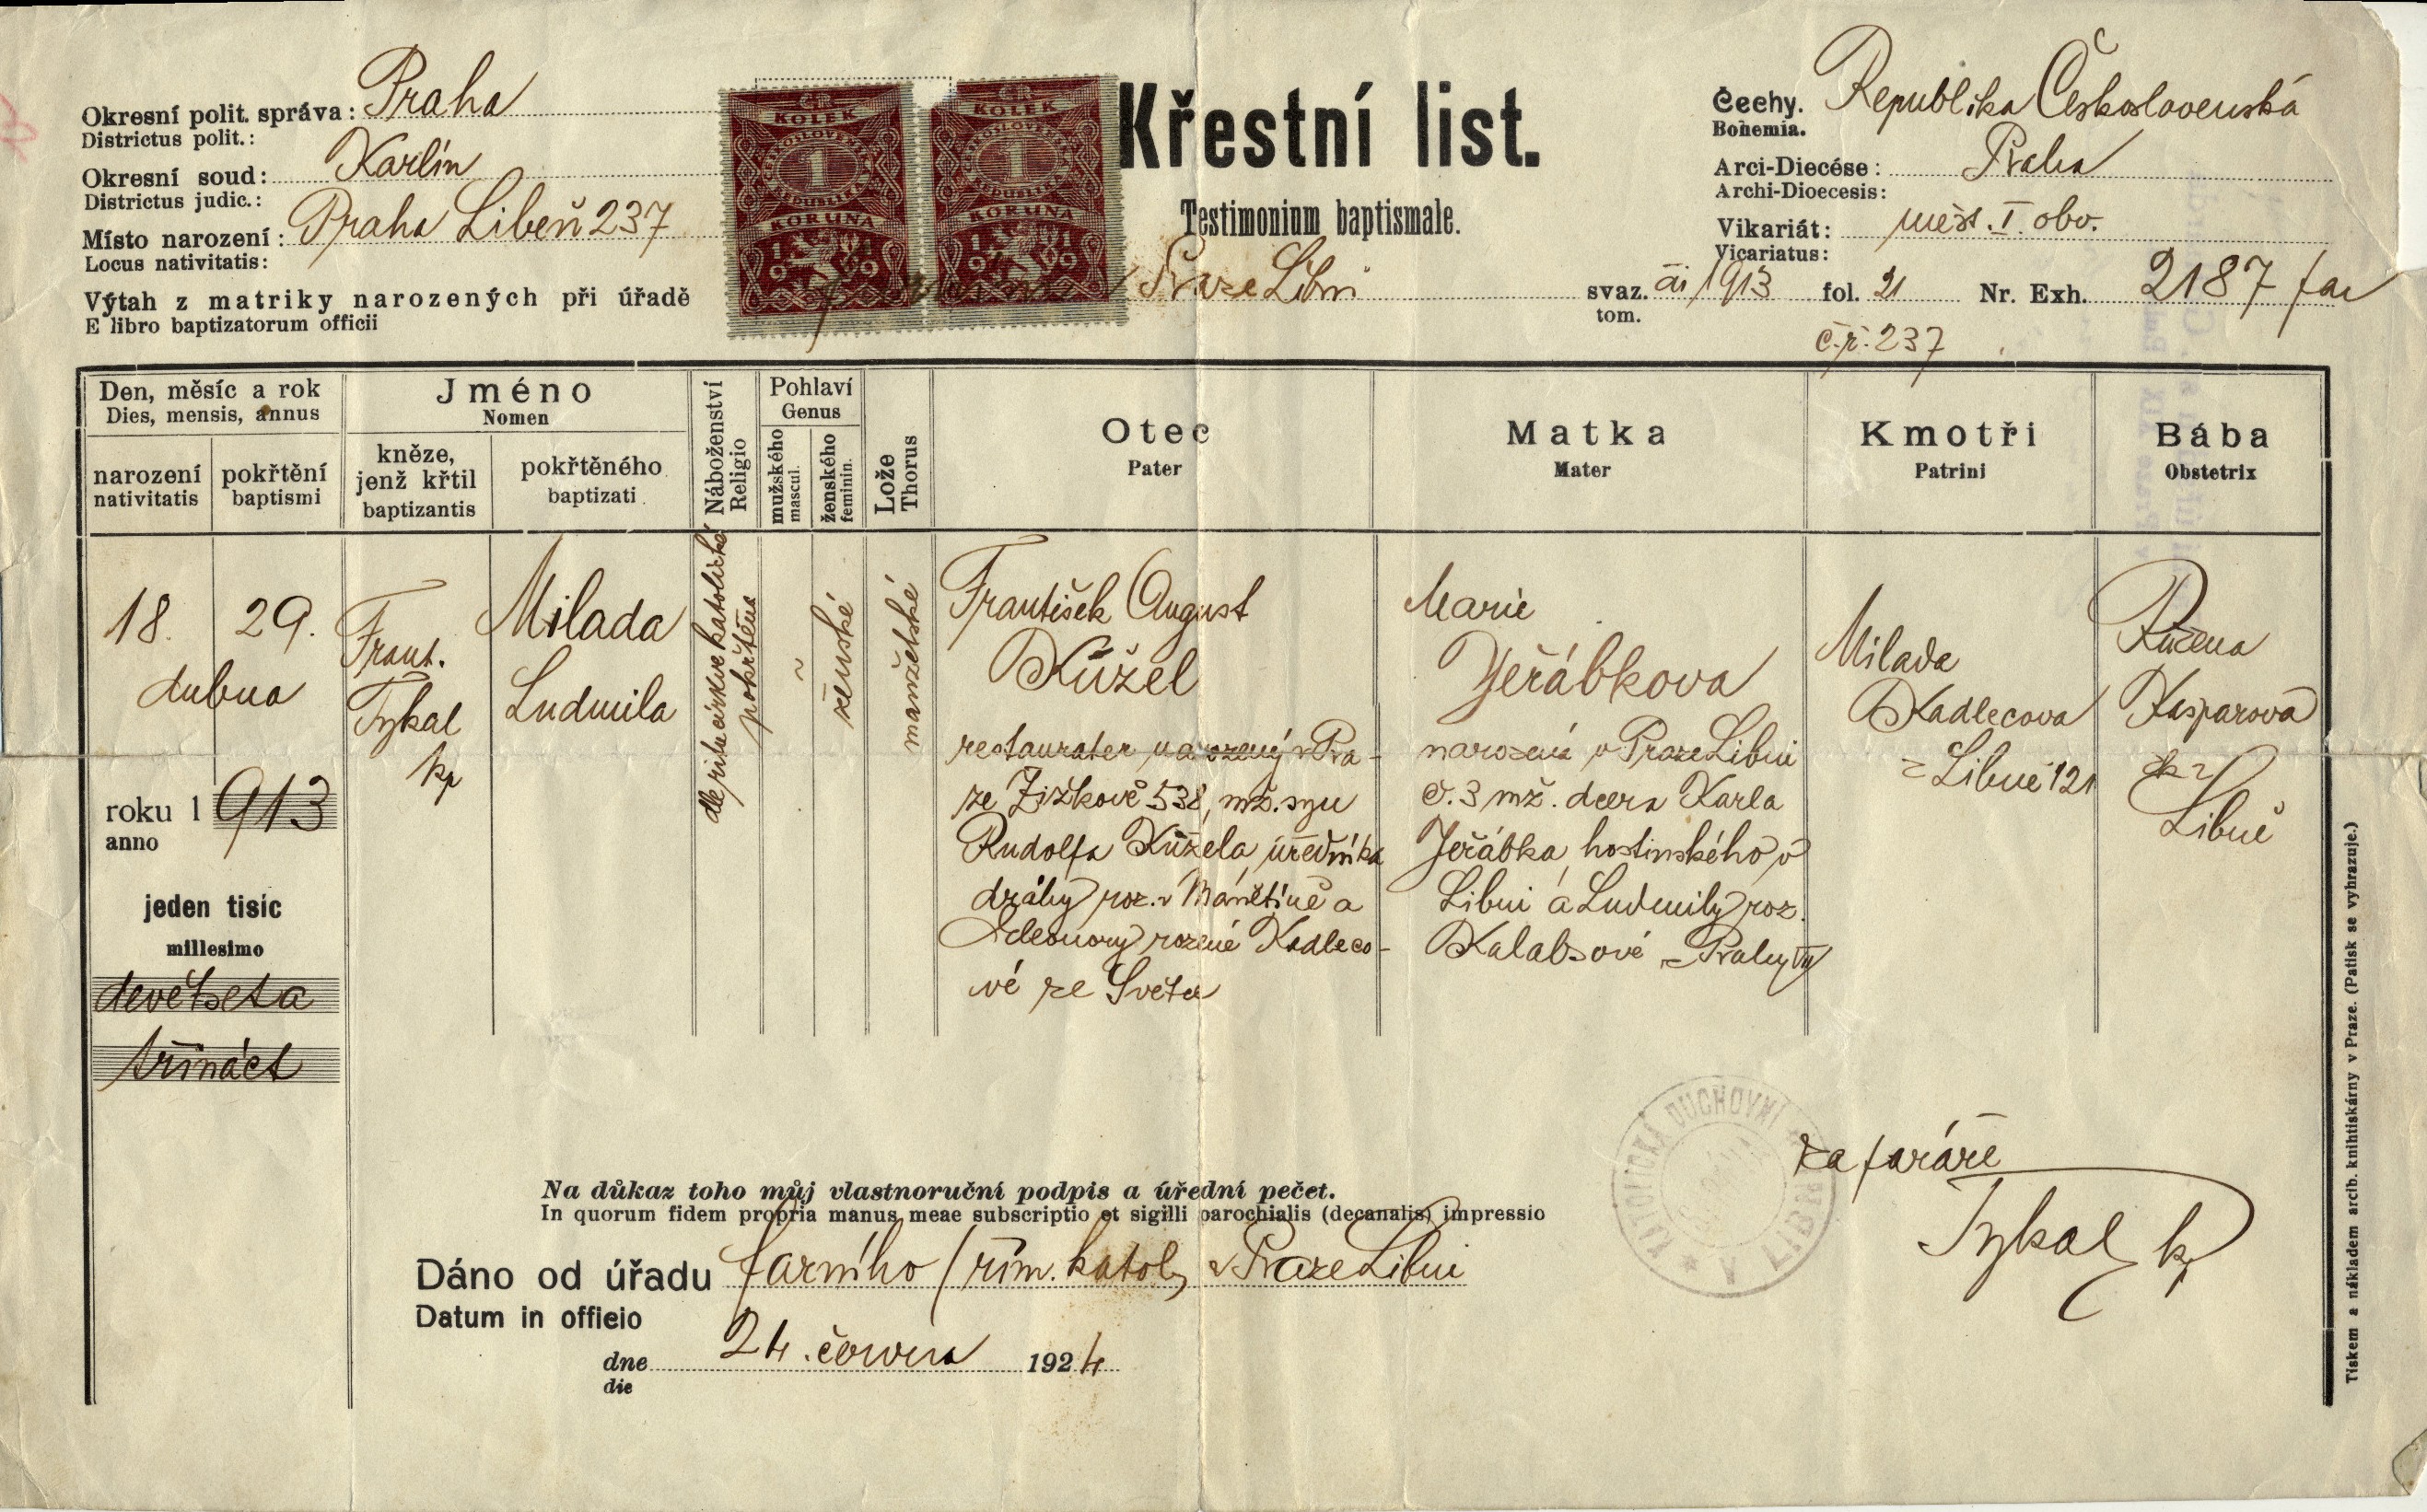 Okresní polit. správa: Praha
Districtus polit.:
Okresní soud: Karlín
Districtus judic.:
Místo narození: Praha Libeň 237
Locus nativitatis:
Výtah z matriky narozených při úřadě Praze Libni
E libro baptizatorum officii
KOLEK
ČESKOSLOVENSKÁ
1
REPUBLIKA
KORUNA
1919
KOLEK
ČESKOSLOVENSKÁ
1
REPUBLIKA
KORUNA
1919
Křestní list.
Testimonium baptismale.
Čechy. Republika Československá
Bohemia.
Arci-Diecése: Praha
Archi-Dioecesis:
Vikariát: měst. I. obv.
Vicariatus:
svaz. 1913 fol. 21 Nr. Exh. 2187 far
tom.
č.p. 237
Den, měsíc a rok
Dies, mensis, annus
narození
nativitatis
pokřtění
baptismi
Jméno
Nomen
kněze,
jenž křtil
baptizantis
pokřtěného
baptizati
Náboženství
Religio
Pohlaví
Genus
mužského
mascul.
ženského
feminin.
Lože
Thorus
Otec
Pater
Matka
Mater
Kmotři
Patrini
Bába
Obstetrix
18. 29.
dubna
roku 1913
anno
jeden tisíc
millesimo
devětseta
třináct
Frant.
Tykal
kp
Milada
Ludmila
dle ritu církve katolické
pokřtěna
ženské
manželské
František August
Kůžel
restaurater narozený v Pra-
ze Žižkově 538, mž. syn
Rudolfa Kůžela, úředníka
dráhy roz. v Manětíně a
Eleonory rozené Kadleco-
vé ze Světce
Marie
Jeřábkova
narozená v Praze Libni
č. 3 mž. dcera Karla
Jeřábka, hostinského v
Libni a Ludmily roz.
Kalabsové z Prahy VII
Milada
Kadlecova
z Libně 121
Růžena
Kašparova
zk z
Libně
KATOLICKÁ DUCHOVNÍ V LIBNI
za faráře
Tykal kp
Na důkaz toho můj vlastnoruční podpis a úřední pečet.
In quorum fidem propria manus meae subscriptio et sigilli parochialis (decanalis) impressio
Dáno od úřadu farního řím. katol. v Praze Libni
Datum in officio
dne 24. června 1924
die
Tiskem a nákladem arcib. knihtiskárny v Praze. (Patisk se vyhrazuje.)